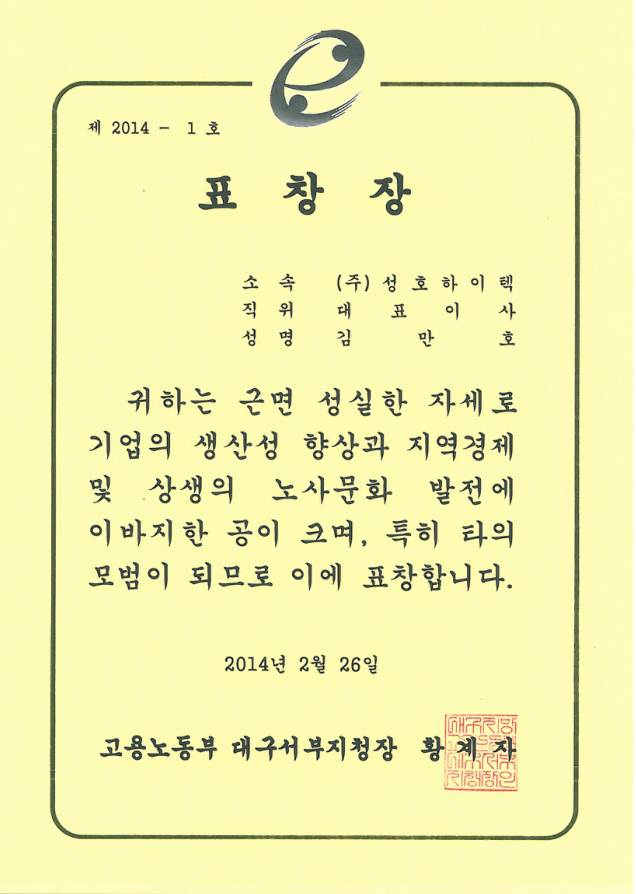 제 2014 - 1 호
표 창 장
소 속 (주) 성 호 하 이 텍
직 위 대 표 이 사
성 명 김 만 호
귀하는 근면 성실한 자세로
기업의 생산성 향상과 지역경제
및 상생의 노사문화 발전에
이바지한 공이 크며, 특히 타의
모범이 되므로 이에 표창합니다.
2014년 2월 26일
고용노동부 대구서부지청장 황 계 자